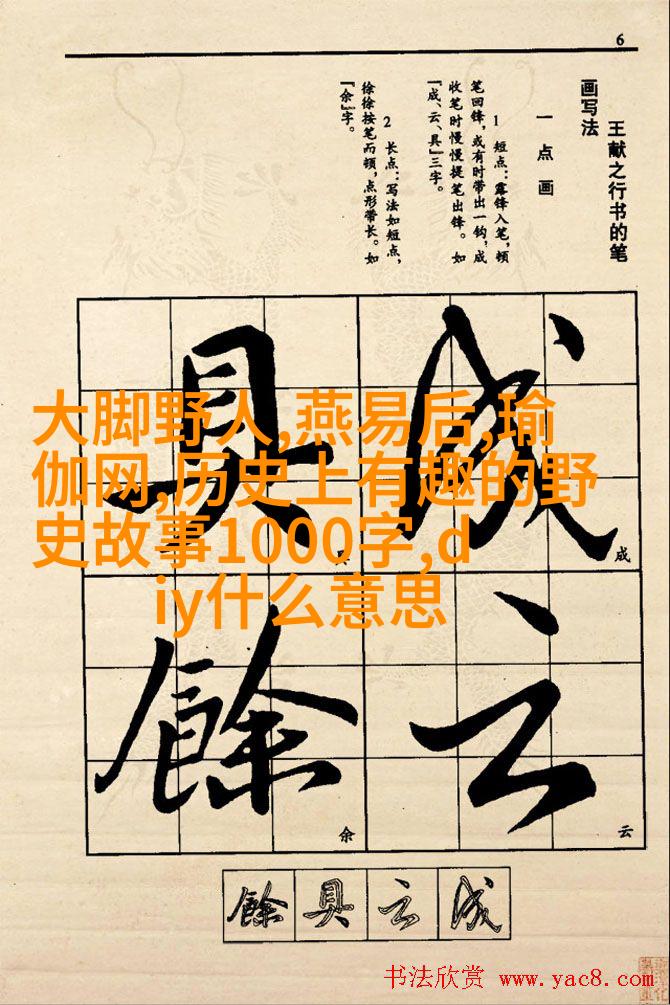 6
王献之行书的笔
画写法
一 点 画
1 短点:露锋入笔,顿
笔回锋,或有时带出一钩,成
收笔时慢慢提笔出锋。如
『成、云、具』三字。
2 长点:写法如短点,
徐徐按笔而顿,点形带长。如
『余』字。
成
具
大脚野人,燕易后,瑜
伽网,历史上有趣的野
史故事1000字,d
iy什么意思
成
云
餘
云
余
餘具云成
书法欣赏 www.yac8.com